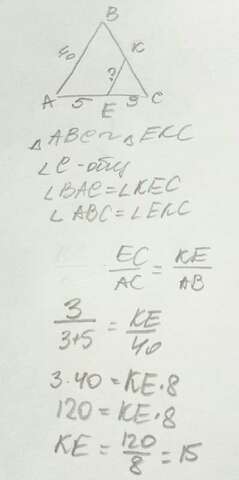 B
40
K
?
A 5 E 3 C
△ABC ~ △EKC
∠C - общ
∠BAC = ∠KEC
∠ABC = ∠EKC
EC/AC = KE/AB
3/3+5 = KE/40
3·40 = KE·8
120 = KE·8
KE = 120/8 = 15